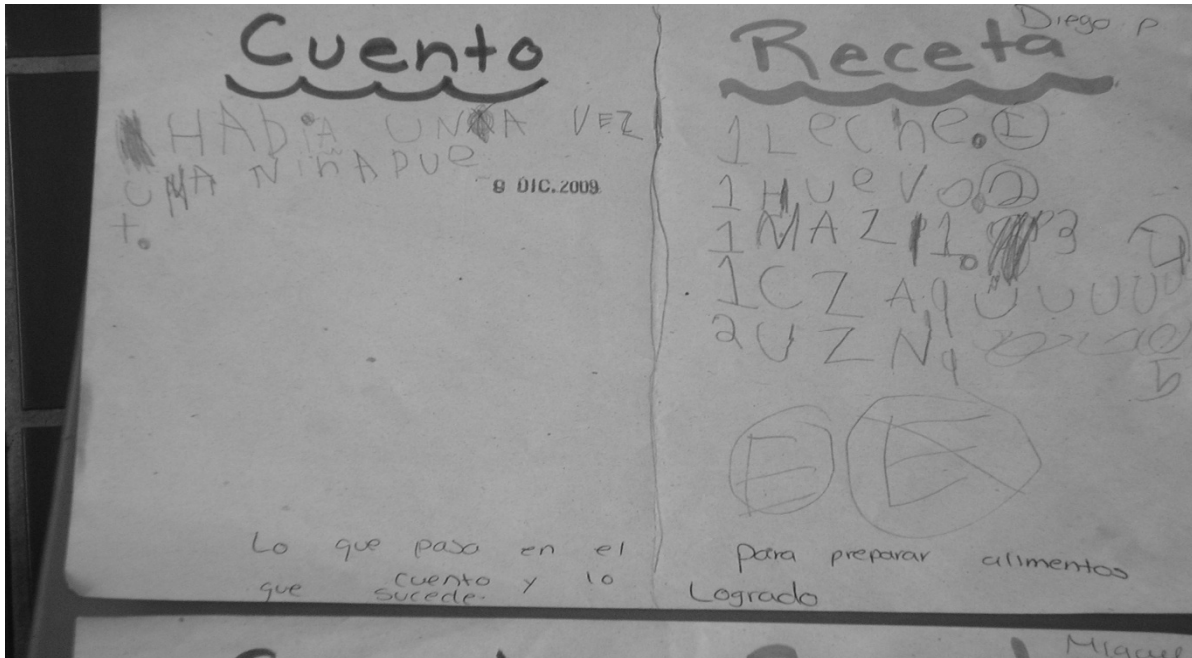 Cuento
HAbiA UNA VEZ
UNA NiñA PUe
t.
8 DIC. 2009
Lo que pasa en el
cuento y lo
que sucede.
Diego P
Receta
1 Leche. 1
1 HUeVo. 2
1 MAZ 1. 3
1 C Z A q U U U U U
2 U Z N q
5
E E
Para preparar alimentos
Logrado
Miguel